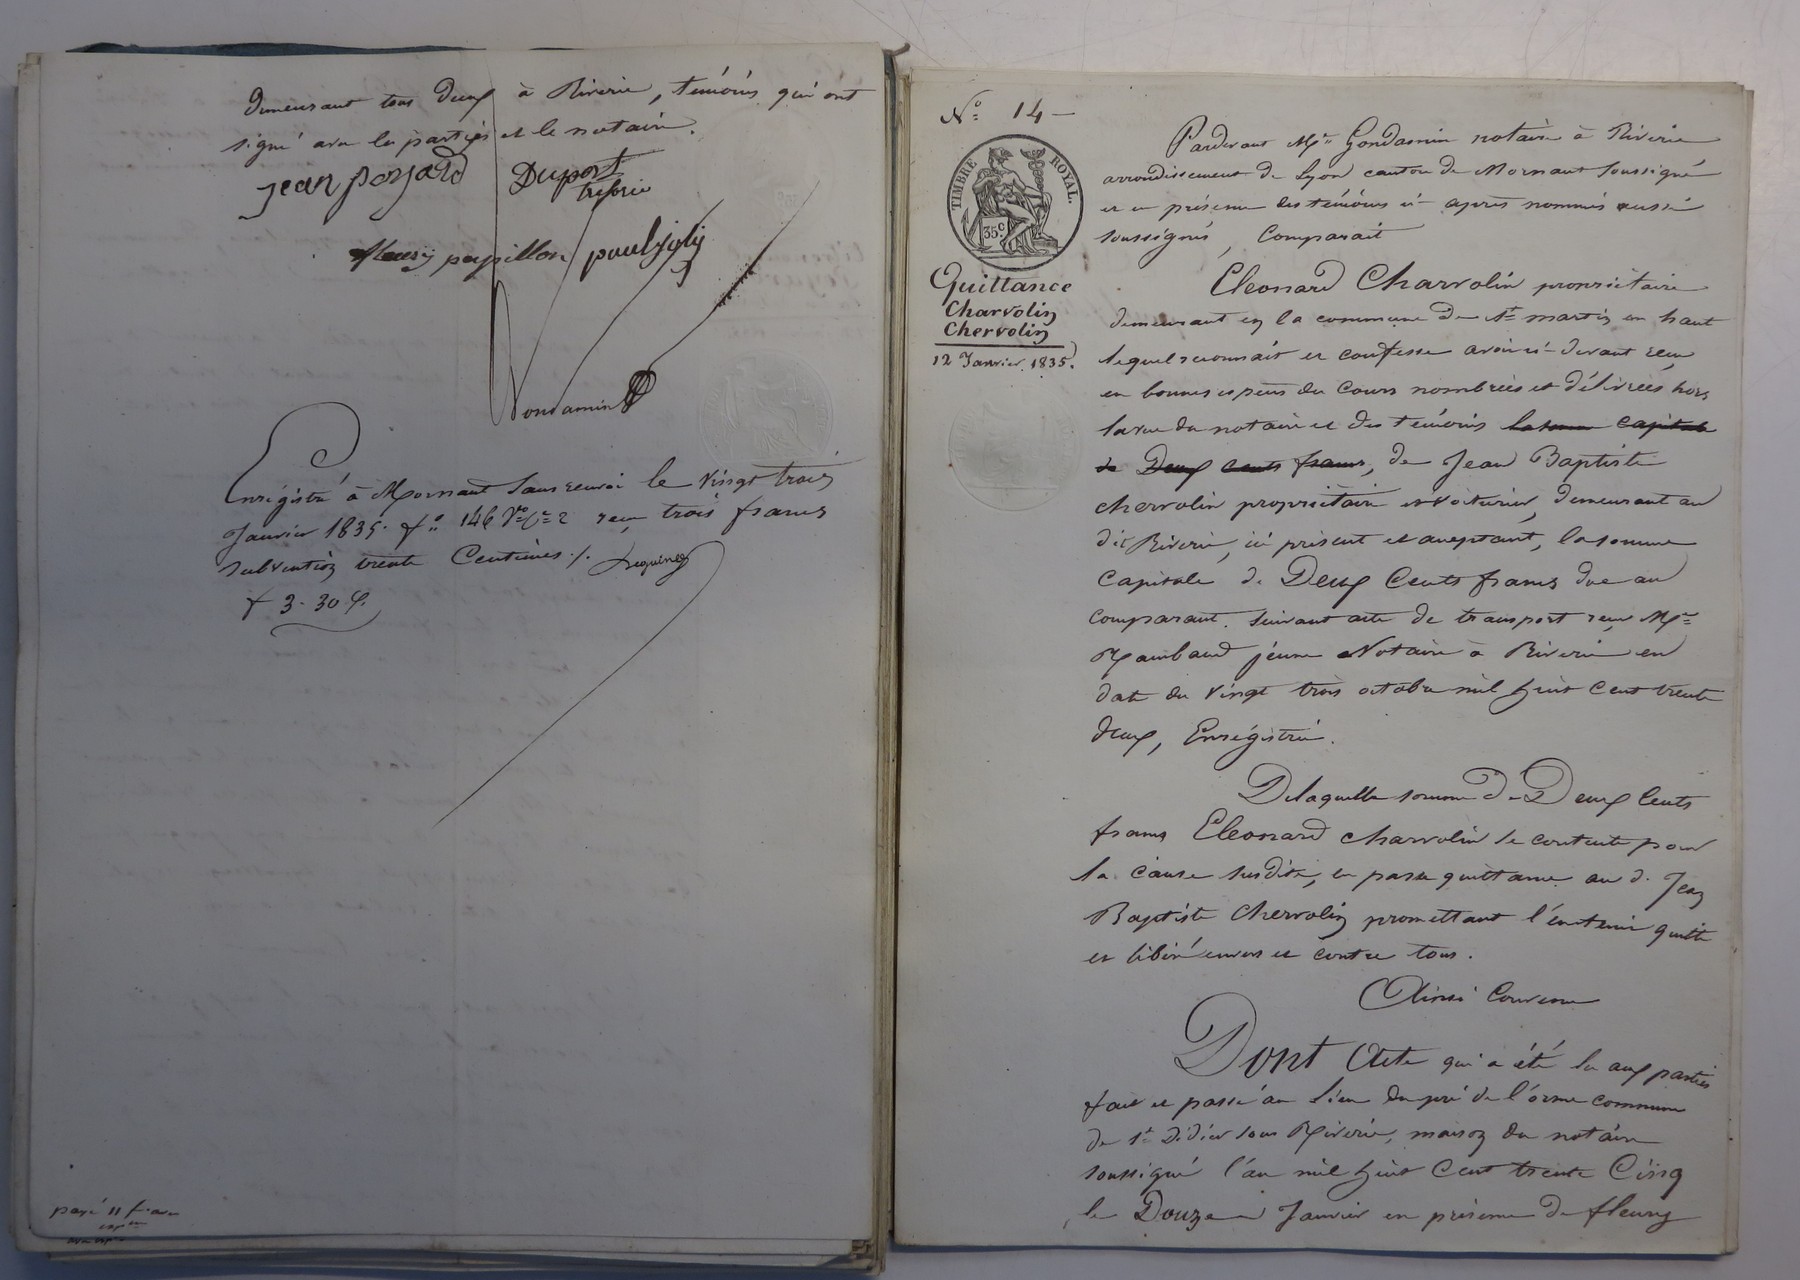 demeurant tous deux à Riverie, témoins qui ont
signé avec les parties et le notaire.
jean poyard Duport
treforie
fleury papillon paul joly
Gondamin
Enregistré à Mornant sans renvoi le vingt trois
Janvier 1835. fo 146 Vo Ce 2 reçu trois francs
subvention trente Centimes ./.
f 3.30 c.
payé 11 francs
No 14
TIMBRE ROYAL.
35c
Quittance
Charvolin
Chervolin
12 Janvier 1835.
Pardevant Me Gondamin notaire à Riverie
arrondissement de Lyon canton de Mornant soussigné
et en présence des témoins ci-après nommés aussi
soussignés, Comparait
Eleonard Charvolin propriétaire
demeurant en la commune de St martin en haut
lequel reconnait et confesse avoir ci-devant reçu
en bonnes espèces du cours nombrées et délivrées hors
la vue du notaire et des témoins la somme capitale
de Deux cents francs, de Jean Baptiste
chervolin propriétaire et voiturier, demeurant au
dit Riverie, ici présent et aceptant, la somme
capitale de Deux Cents francs due au
comparant suivant acte de transport reçu Me
Raimbaud jeune Notaire à Riverie en
date du vingt trois octobre mil huit cent trente
deux, Enrégistré.
De laquelle somme de Deux Cents
francs Eleonard charvolin se contente pour
la cause susdite, en passe quittance au d. Jean
Baptiste chervolin promettant l'en tenir quitte
et libéré envers et contre tous.
Ainsi Convenu
Dont Acte qui a été lu aux parties
fait et passé au lieu du pré de l'orme commune
de St Didier sous Riverie, maison du notaire
soussigné l'an mil huit Cent trente Cinq
le Douze Janvier en présence de fleury